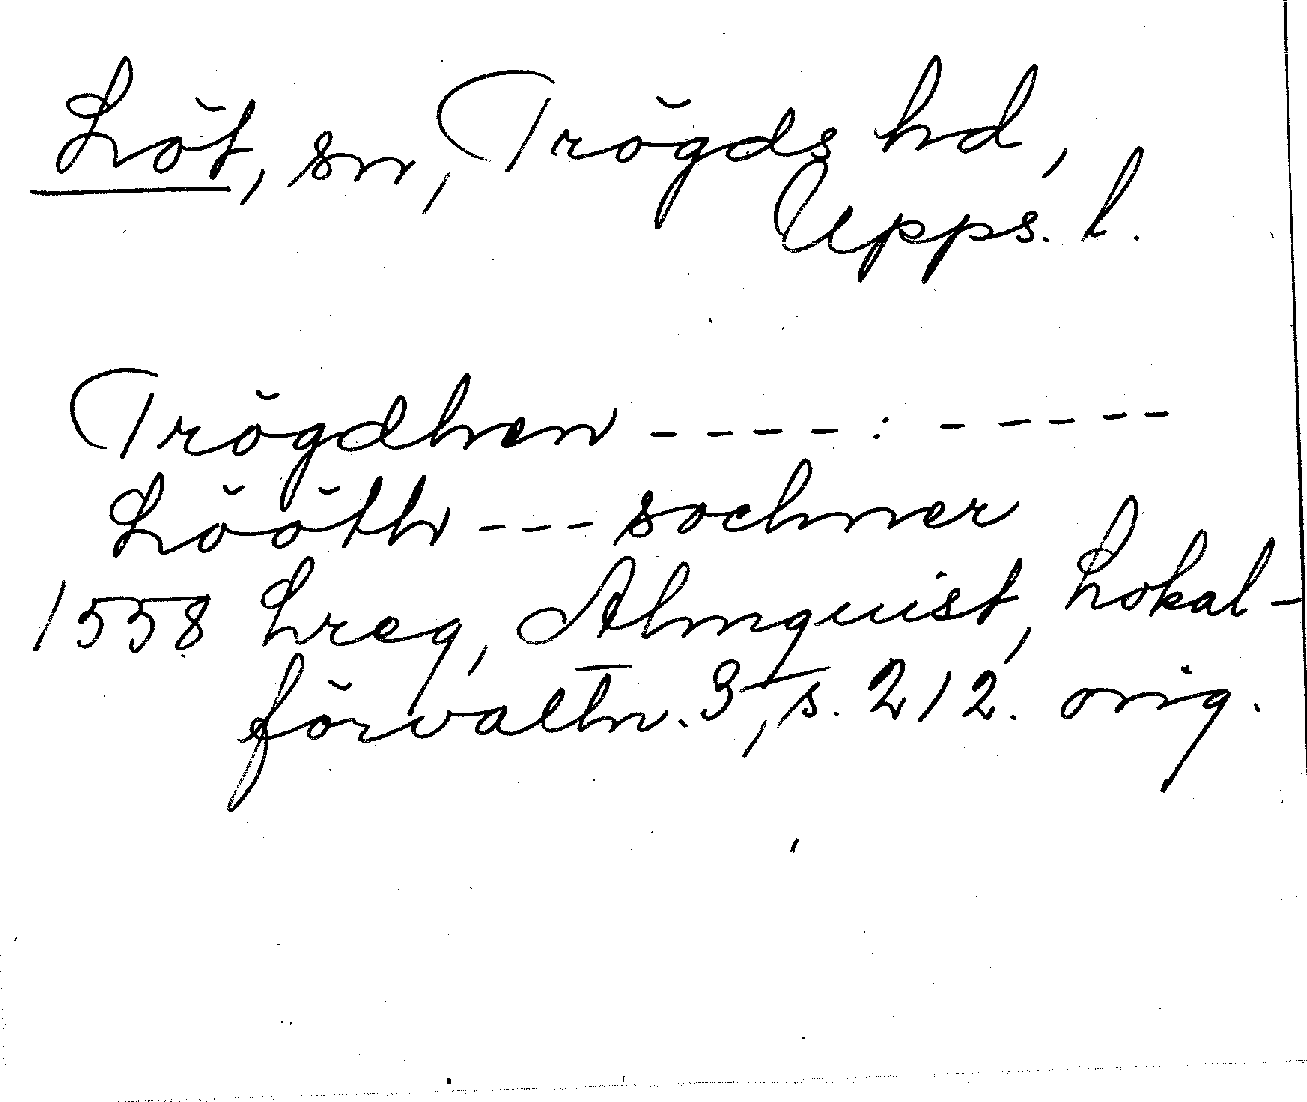 Löt, sn, Trögds hd,
Upps. l.
Trögdhen ----: -----
Lööth --- sochner
1558 Lreg, Almquist, Lokal-
förvaltn. 3, s. 212. orig.